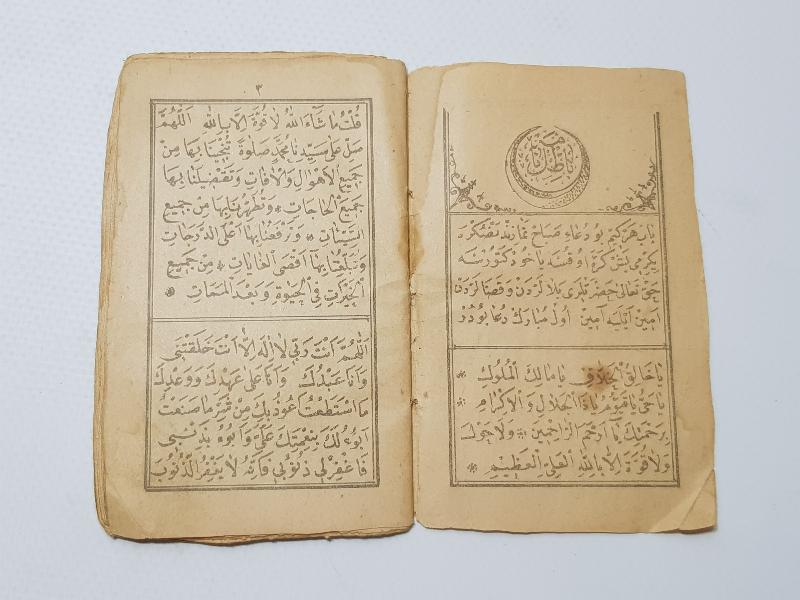 باب هر كيم بو دعاء صباح نمازندنصكره
يكرمى يتى كره اوقسه ياخود كتورسه
حق تعالى حضرتلرى بلالردن وقضالردن
امين ايليه آمين اول مبارك دعا بودر
يا خالق الخلائق يا مالك الملوك
يا حى يا قيوم يا ذا الجلال والاكرام
برحمتك يا ارحم الراحمين ولا حول
ولا قوة الا بالله العلى العظيم
٣
قلت ما شاء الله لا قوة الا بالله اللهم
صل على سيدنا محمد صلوة تنجينا بها من
جميع الاهوال والافات وتقضى لنا بها
جميع الحاجات وتطهرنا بها من جميع
السيئات وترفعنا بها اعلى الدرجات
وتبلغنا بها اقصى الغايات من جميع
الخيرات فى الحيوة وبعد الممات
اللهم انت ربى لا اله الا انت خلقتنى
وانا عبدك وانا على عهدك ووعدك
ما استطعت اعوذ بك من شر ما صنعت
ابوء لك بنعمتك على وابوء بذنبى
فاغفرلى ذنوبى فانه لا يغفر الذنوب